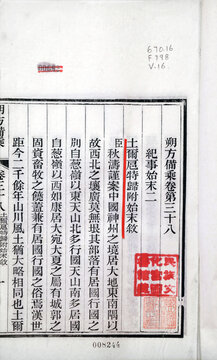 670.16
F798
V.16
朔方備乘卷第三十八
紀事始末二
土爾扈特歸附始末敘
臣秋濤謹案中國神州之境居大地東南隅以
故西北之壤廣莫無垠其部落有居國行國之
別自葱嶺以東天山北多行國天山南多居國
自葱嶺以西如康居大宛大夏之屬有城郭之
固資畜牧之饒蓋兼有居國行國之俗焉漢世
距今二千餘年山川風土猶大略相同也土爾
朔方備乘
卷三十八
土爾扈特歸附始末敘
一
民族文化宮圖書館藏
008244